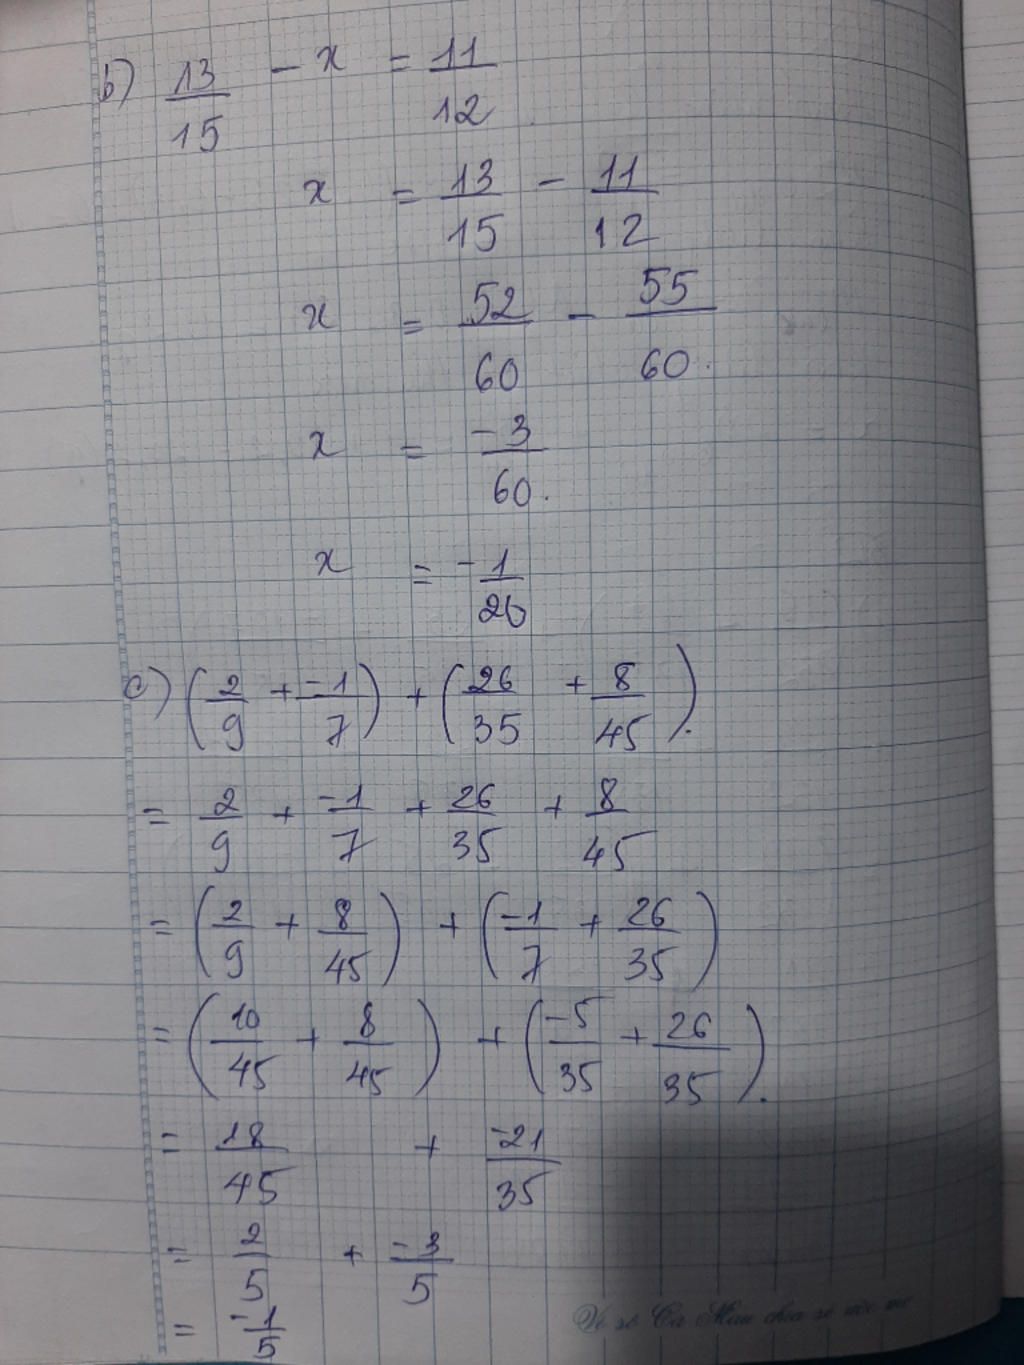 b) 13/15 - x = 11/12
x = 13/15 - 11/12
x = 52/60 - 55/60.
x = -3/60.
x = -1/20
c) (2/9 + -1/7) + (26/35 + 8/45).
= 2/9 + -1/7 + 26/35 + 8/45
= (2/9 + 8/45) + (-1/7 + 26/35)
= (10/45 + 8/45) + (-5/35 + 26/35).
= 18/45 + -21/35
= 2/5 + -3/5
= -1/5